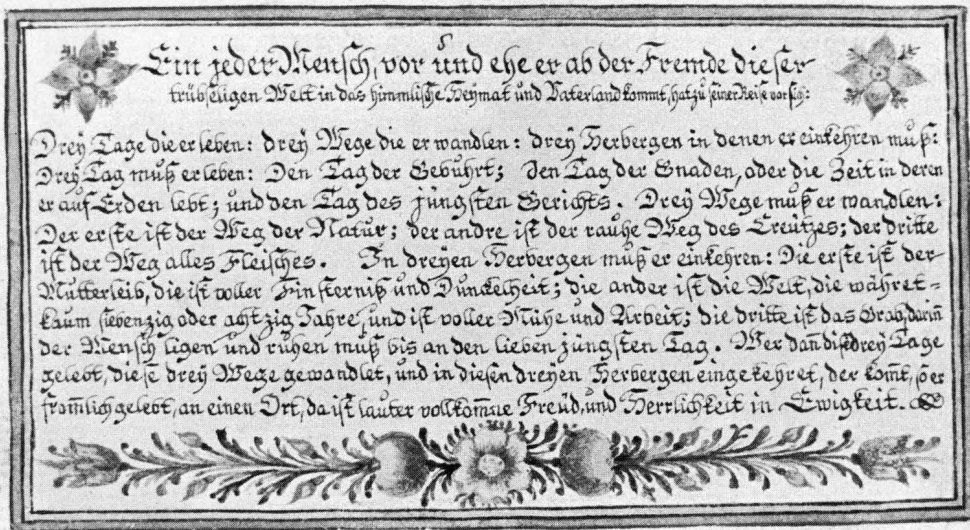 Ein jeder Mensch, vor und ehe er ab der Fremde dieser
trübseligen Welt in das himmlische Heymat und Vaterland kommt, hat zu seiner Reise vor sich:
Dreÿ Tage die er leben: dreÿ Wege die er wandlen: dreÿ Herbergen in denen er einkehren muß:
Dreÿ Tag muß er leben: Den Tag der Gebuhrt; den Tag der Gnaden, oder die Zeit in deren
er auf Erden lebt; und den Tag des jüngsten Gerichts. Dreÿ Wege muß er wandlen:
Der erste ist der Weg der Natur; der andre ist der rauhe Weg des Creutzes; der dritte
ist der Weg alles Fleisches. In dreÿen Herbergen muß er einkehren: Die erste ist der
Mutterleib, die ist voller Finsterniß und Dunckelheit; die ander ist die Welt, die währet-
kaum siebenzig oder achtzig Jahre, und ist voller Mühe und Arbeit; die dritte ist das Grab, dariñ
der Mensch ligen und ruhen muß bis an den lieben jüngsten Tag. Wer dañ dise dreÿ Tage
gelebt, diese dreÿ Wege gewandlet, und in diesen dreÿen Herbergen eingekehret, der kom̄t, so er
from̄lich gelebt, an einen Ort, da ist lauter vollkom̄ne Freud, und Herrlichkeit in Ewigkeit.